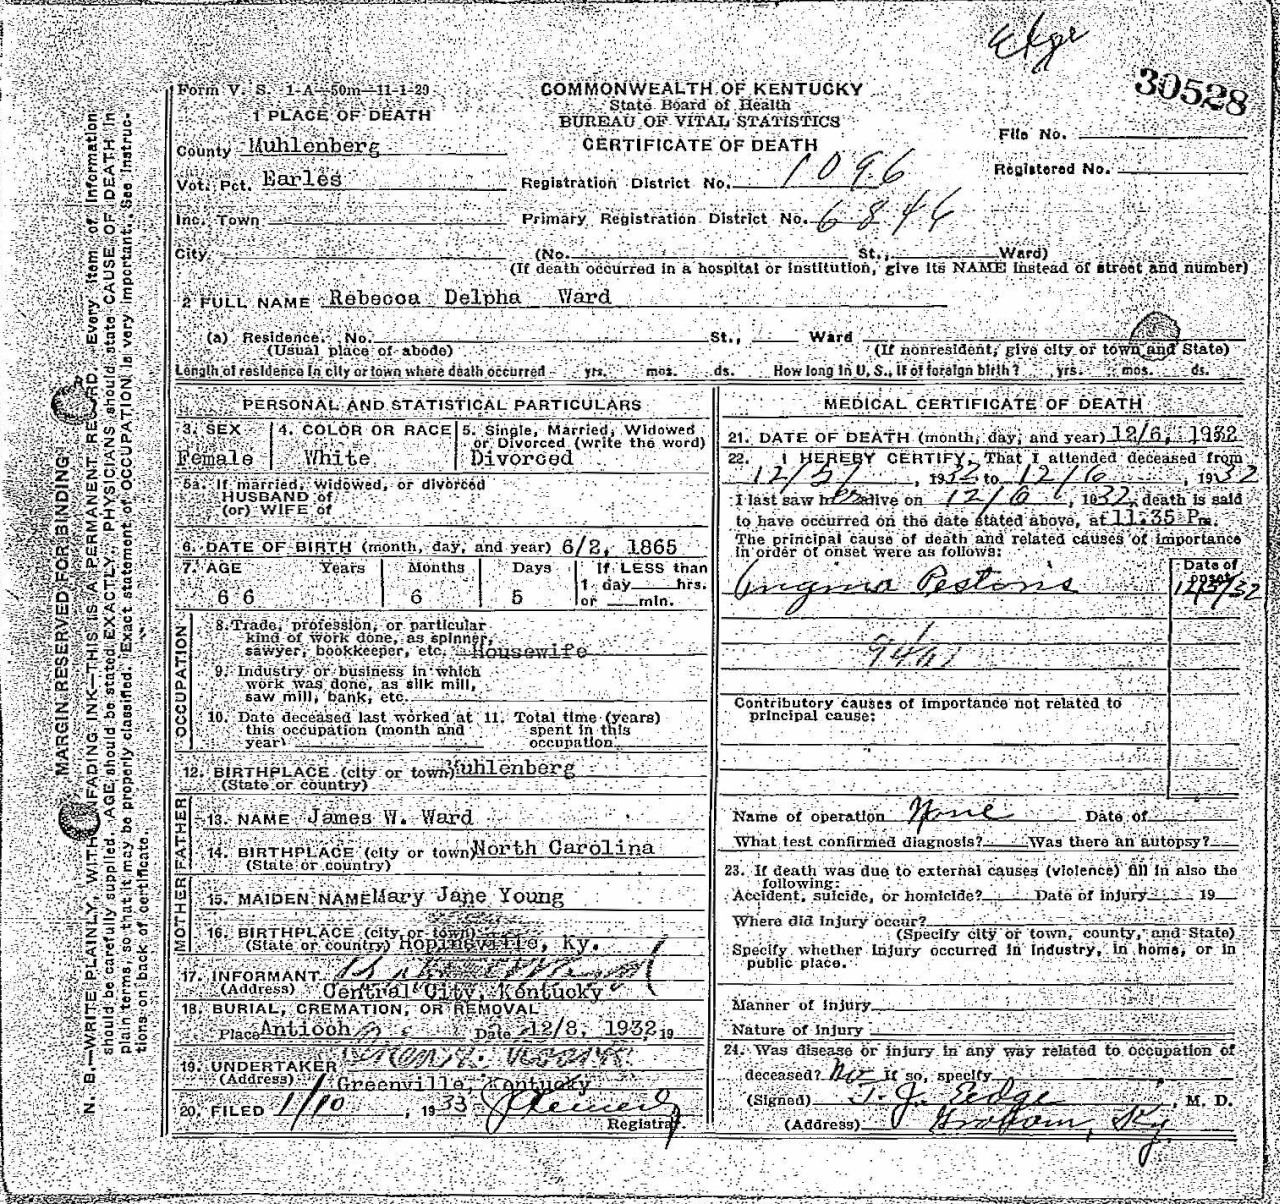 Edge
30528
Form V. S. 1-A—50m—11-1-29
COMMONWEALTH OF KENTUCKY
State Board of Health
BUREAU OF VITAL STATISTICS
CERTIFICATE OF DEATH
File No.
Registered No.
1 PLACE OF DEATH
County Muhlenberg
Vot. Pct. Earles
Registration District No. 1096
Inc. Town
Primary Registration District No. 6846
City (No. St., Ward)
(If death occurred in a hospital or institution, give its NAME instead of street and number)
2 FULL NAME Rebecca Delpha Ward
(a) Residence. No. St., Ward
(Usual place of abode) (If nonresident, give city or town and State)
Length of residence in city or town where death occurred yrs. mos. ds. How long in U. S., if of foreign birth? yrs. mos. ds.
PERSONAL AND STATISTICAL PARTICULARS
3. SEX 4. COLOR OR RACE 5. Single, Married, Widowed
or Divorced (write the word)
Female White Divorced
5a. If married, widowed, or divorced
HUSBAND of
(or) WIFE of
6. DATE OF BIRTH (month, day, and year) 6/2, 1865
7. AGE Years Months Days If LESS than
1 day hrs.
66 6 5 or min.
OCCUPATION
8. Trade, profession, or particular
kind of work done, as spinner,
sawyer, bookkeeper, etc. Housewife
9. Industry or business in which
work was done, as silk mill,
saw mill, bank, etc.
10. Date deceased last worked at 11. Total time (years)
this occupation (month and spent in this
year) occupation
12. BIRTHPLACE (city or town) Muhlenberg
(State or country)
FATHER
13. NAME James W. Ward
14. BIRTHPLACE (city or town) North Carolina
(State or country)
MOTHER
15. MAIDEN NAME Mary Jane Young
16. BIRTHPLACE (city or town)
(State or country) Hopinsville, Ky.
17. INFORMANT
(Address) Central City, Kentucky
18. BURIAL, CREMATION, OR REMOVAL
Place Antioch Date 12/8, 1932 19
19. UNDERTAKER
(Address) Greenville, Kentucky
20. FILED 1/10, 1933
Registrar.
MEDICAL CERTIFICATE OF DEATH
21. DATE OF DEATH (month, day, and year) 12/6, 1932
22. I HEREBY CERTIFY, That I attended deceased from
12/5/, 1932 to 12/6, 1932
I last saw her alive on 12/6, 1932, death is said
to have occurred on the date stated above, at 11.35 Pm.
The principal cause of death and related causes of importance
in order of onset were as follows:
Date of
onset
Angina Pestoris 12/5/32
Contributory causes of importance not related to
principal cause:
Name of operation None Date of
What test confirmed diagnosis? Was there an autopsy?
23. If death was due to external causes (violence) fill in also the
following:
Accident, suicide, or homicide? Date of injury 19
Where did injury occur?
(Specify city or town, county, and State)
Specify whether injury occurred in industry, in home, or in
public place.
Manner of injury
Nature of injury
24. Was disease or injury in any way related to occupation of
deceased? No If so, specify
(Signed) T. J. Eedge, M. D.
(Address) Graham, Ky.
MARGIN RESERVED FOR BINDING
N. B.—WRITE PLAINLY, WITH UNFADING INK—THIS IS A PERMANENT RECORD. Every item of information
should be carefully supplied. AGE should be stated EXACTLY. PHYSICIANS should state CAUSE OF DEATH in
plain terms, so that it may be properly classified. Exact statement of OCCUPATION is very important. See instruc-
tions on back of certificate.